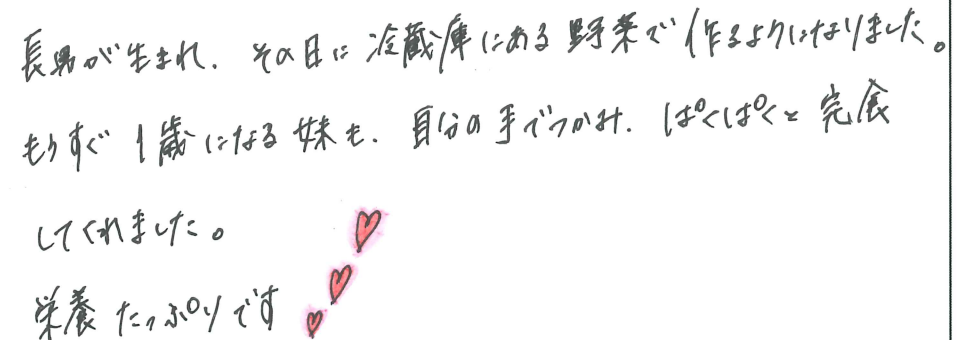 長男が生まれ、その日に冷蔵庫にある野菜で作るようになりました。
もうすぐ1歳になる妹も、自分の手でつかみ、ぱくぱくと完食
してくれました。
栄養たっぷりです